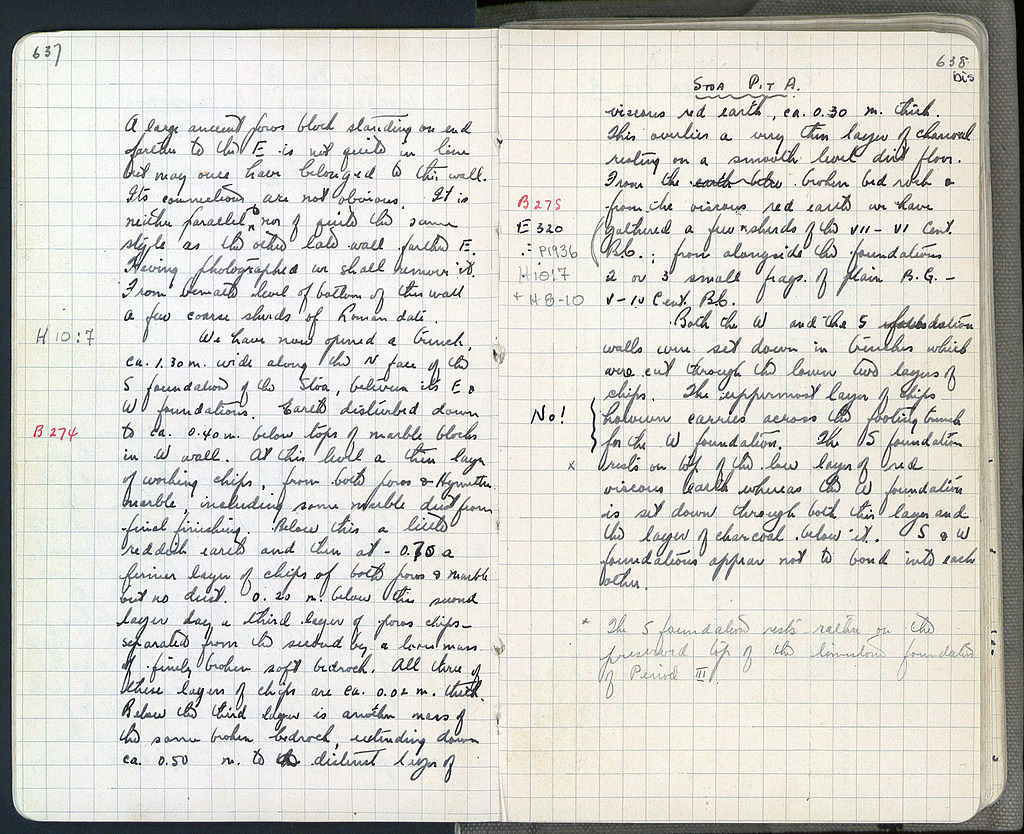 637
A large ancient poros block standing on end
farther to the E is not quite in line
but may once have belonged to this wall.
Its connections are not obvious. It is
neither parallel to nor of quite the same
style as the other late wall farther E.
Having photographed we shall remove it.
From beneath level of bottom of this wall
a few coarse sherds of Roman date.
H 10:7
We have now opened a trench,
ca. 1.30 m. wide along the N face of the
S foundation of the Stoa, between its E &
W foundations. Earth disturbed down
B 274
to ca. 0.40 m. below tops of marble blocks
in W wall. At this level a thin layer
of working chips, from both poros & Hymettian
marble, including some marble dust from
final finishing. Below this a little
reddish earth and then at - 0.75 a
firmer layer of chips of both poros & marble
but no dust. 0.20 m. below this second
layer lay a third layer of poros chips -
separated from the second by a mass
of finely broken soft bedrock. All three of
these layers of chips are ca. 0.02 m. thick.
Below the third layer is another mass of
the same broken bedrock, extending down
ca. 0.50 m. to distinct layer of
638
bis
Stoa Pit A.
viscous red earth, ca. 0.30 m. thick.
This overlies a very thin layer of charcoal
resting on a smooth level dirt floor.
From the earth below broken bed rock &
B 275
from the viscous red earth we have
E 320
gathered a few sherds of the VII - VI Cent.
P1936
B.C.; from alongside the foundations
H 10:7
2 or 3 small frags. of plain B.G. -
+ H 8-10
V-IV Cent. B.C.
Both the W and the S foundation
walls were set down in trenches which
were cut through the lower two layers of
chips. The uppermost layer of chips
No!
however carries across the footing trench
for the W foundation. The S foundation
x rests on top of the low layer of red
viscous earth whereas the W foundation
is set down through both this layer and
the layer of charcoal below it. S & W
foundations appear not to bond into each
other.
* The S foundation rests rather on the
preserved top of the limestone foundation
of Period III.